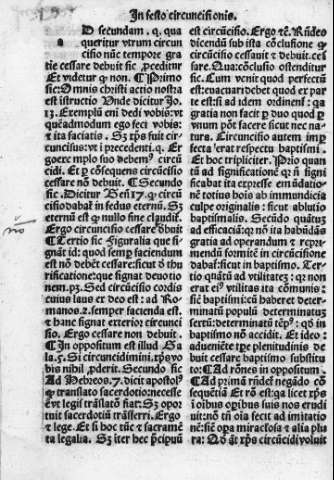 In festo circuncisionis.
D secundam. q. qua
queritur vtrum circun
cisio nũc tempore gra
tie cessare debuit sic ꝓceditur
Et videtur ꝙ non. ¶ Primo
sic: Omnis christi actio nostra
est istructio Vnde dicitur Jo.
13. Exemplũ enĩ dedi vobis: vt
quẽadmodum ego feci vobis:
et ita faciatis. Sꝫ xp̃s fuit cir
cuncisus: vt i precedenti. q. Er
go
cidi. Et ꝑ cõsequens circũcisio
cessare nõ debuit. ¶ Secundo
sic. Dicitur Beñ 17. ꝙ circũ
cisio dabat̃ in fedus eternũ. Sꝫ
eternũ est ꝙ nullo fine claudit̃.
Ergo circuncisio cessare debuit
¶ Tertio sic Figuralia que si
gnãt id: quod semꝑ faciendum
est nõ debẽt cessare: sicut
rificationeque signat deuotio
nem. Sed circũcisio cordis
cuius laus ex deo est: ad Ro
manos. 2. semper facienda est.
et hanc signat exterior circunci
sio. Ergo cessare non debuit.
¶ In oppositum est illud Ga
la. 5. Si circuncidimini. xp̃s vo
bis nihil ꝓderit. Secundo sic
Ad Hebreos. 7. dicit apostol⁹
ꝙ translato sacerdotio: necesse
ẽ vt legis trãslatio fiat: Sꝫ opor
tuit sacerdotiũ trãsferri. Ergo
et lege. Et si hoc tũc et sacramẽ
ta legalia. Sꝫ iter hec p̃cipuũ
est circũcisio. Ergo
dicendũ sub ista cõclusione ꝙ
circũcisio cessauit et debuit ces
sare. Qua cõclusio ostenditur
sic. Cum venit quod perfectũ
est: euacuari debet quod ex par
te est: si ad idem ordinent̃: ga
gratia non facit ꝑ duo quod ꝑ
vnum põt facere sicut nec na
tura. Circuncisio autem impꝑ
fecta erat respectu baptismi.
Et hoc tripliciter. Prio quan
tũ ad significationẽ
ficabat ita expresse emũdatio
nẽ totius hois ab immundicia
culpe originalis: sicut ablutio
baptismalis. Secũdo quãtuʒ
ad efficaciã: qꝛ nõ ita habũdãs
gratia ad operandum
mendũ fomitẽ in circũcisione
dabat̃: sicut in baptismo. Ter
tio quãtũ ad vtilitatẽ: qꝛ non
erat ei⁹ vtilitas ita cõmunis:
sic̃ baptismi: cũ haberet deter
minatũ populũ determinatuʒ
sextũ: determinatũ
baptismo nõ accidit. Et ideo:
adueniẽte tpe plenitudinis de
buit cessare baptismo substitu
to: ¶ Ad rõnes in oppositum.
¶ Ad primã rñdet̃ negãdo cõ
sequẽtiã Et rõ est: ga licet xp̃s
ĩ oĩbus opibus suis nos erudi
uit: nõ tñ oĩa fecit ad imitatio
nẽ: siẽ opa miraclosa et alia plu
ra: Qo